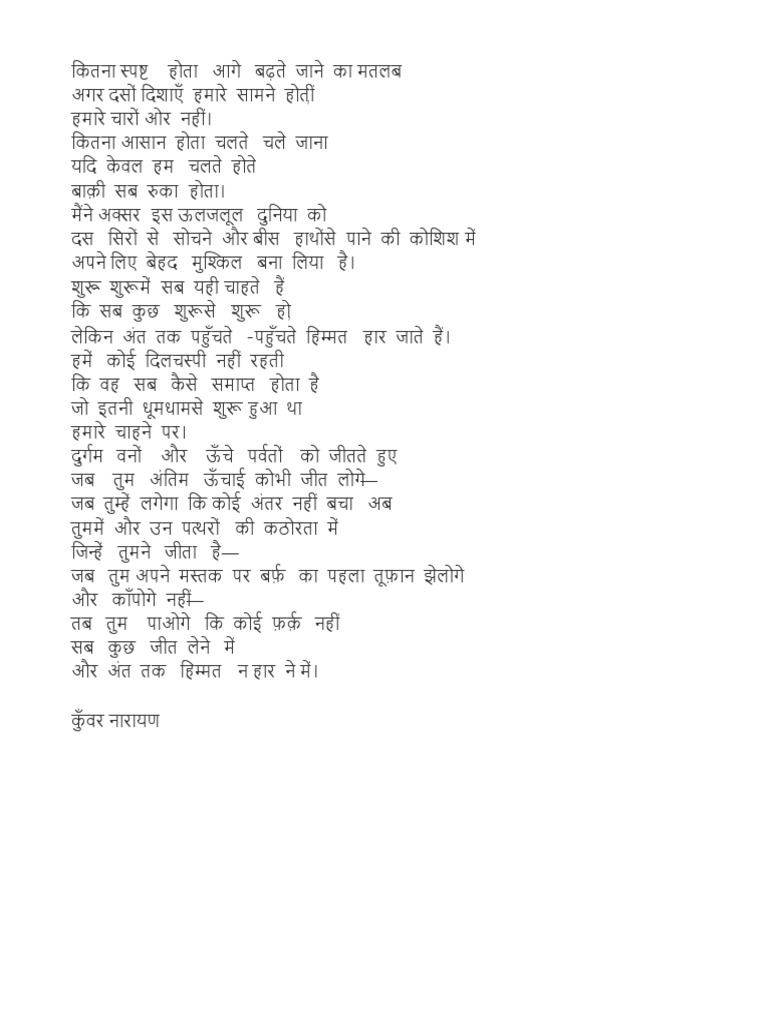 कितना स्पष्ट होता आगे बढ़ते जाने का मतलब
अगर दसों दिशाएँ हमारे सामने होतीं,
हमारे चारों ओर नहीं।
कितना आसान होता चलते चले जाना
यदि केवल हम चलते होते
बाक़ी सब रुका होता।
मैंने अक्सर इस ऊलजलूल दुनिया को
दस सिरों से सोचने और बीस हाथोंसे पाने की कोशिश में
अपने लिए बेहद मुश्किल बना लिया है।
शुरू शुरूमें सब यही चाहते हैं
कि सब कुछ शुरूसे शुरू हो,
लेकिन अंत तक पहुँचते -पहुँचते हिम्मत हार जाते हैं।
हमें कोई दिलचस्पी नहीं रहती
कि वह सब कैसे समाप्त होता है
जो इतनी धूमधामसे शुरू हुआ था
हमारे चाहने पर।
दुर्गम वनों और ऊँचे पर्वतों को जीतते हुए
जब तुम अंतिम ऊँचाई कोभी जीत लोगे—
जब तुम्हें लगेगा कि कोई अंतर नहीं बचा अब
तुममें और उन पत्थरों की कठोरता में
जिन्हें तुमने जीता है—
जब तुम अपने मस्तक पर बर्फ़ का पहला तूफ़ान झेलोगे
और काँपोगे नहीं—
तब तुम पाओगे कि कोई फ़र्क़ नहीं
सब कुछ जीत लेने में
और अंत तक हिम्मत न हार ने में।
कुँवर नारायण